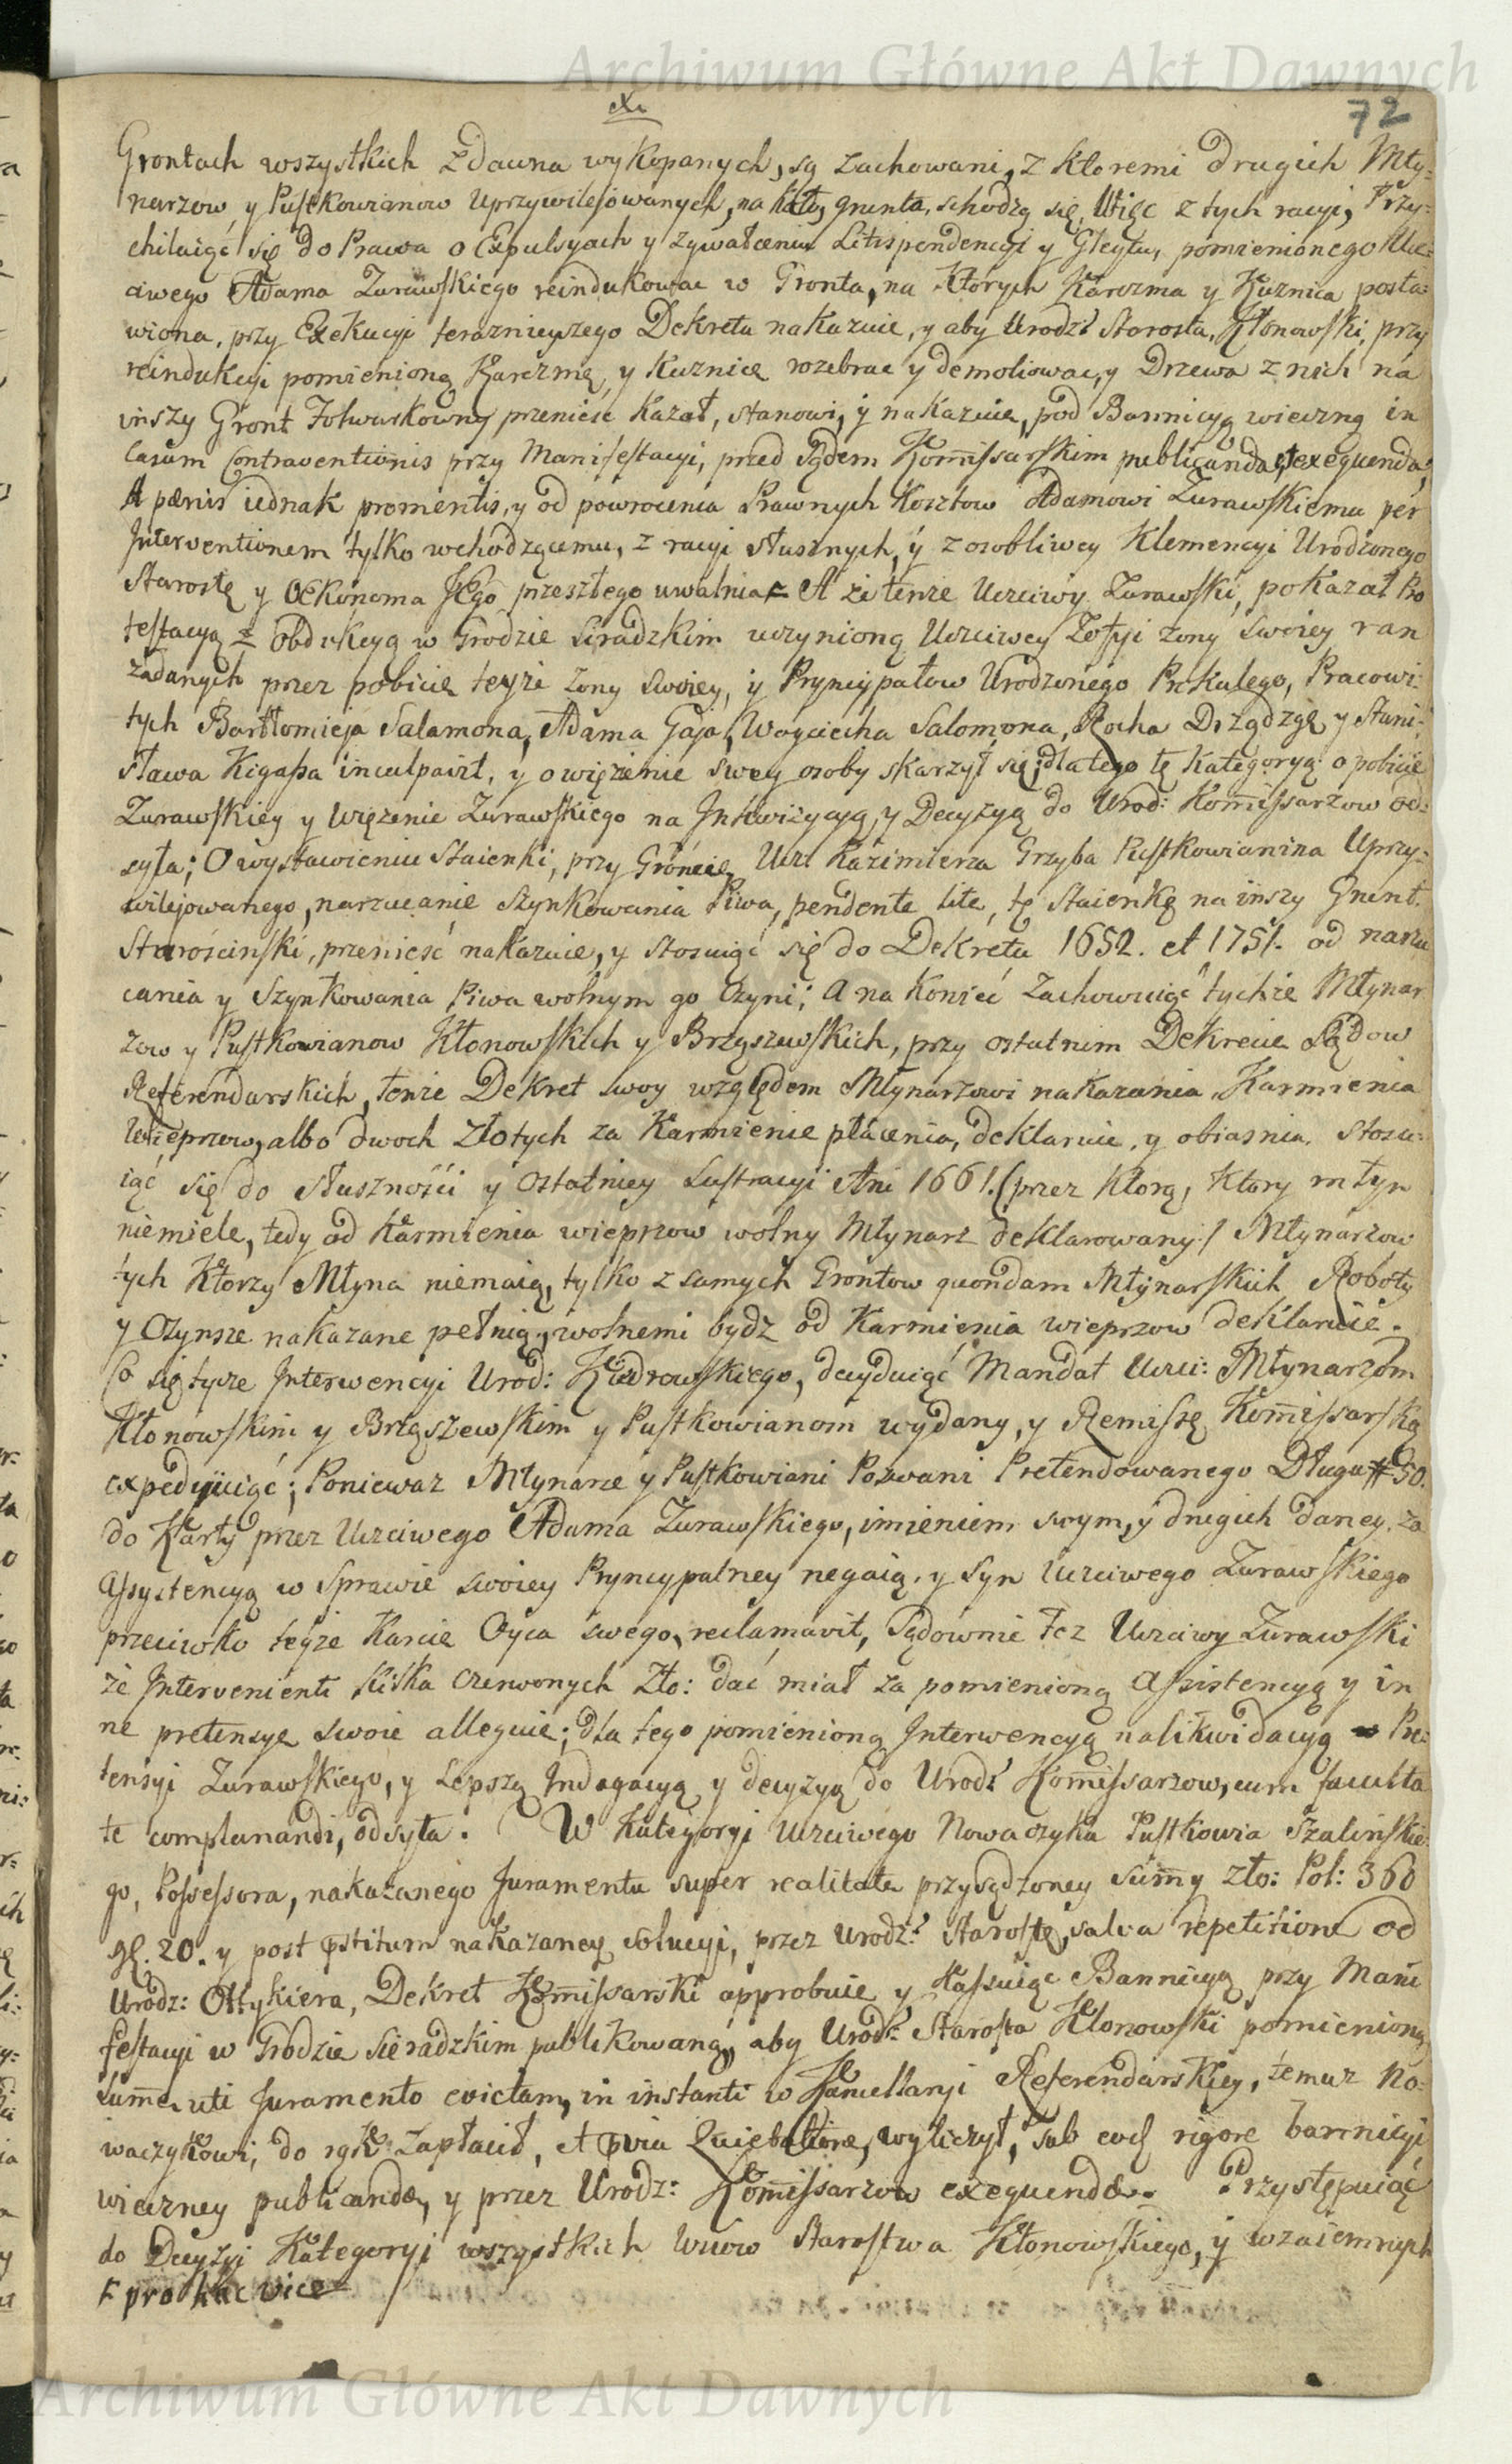 Archiwum Główne Akt Dawnych
ex
72
Grontach wszystkich zdawna wykopanych, są zachowani, z ktoremi drugich Mły-
narzow, y Pustkowianow Uprzywilejowanych, na grunta, schodzą się, Więc z tych racyi, Przy-
chilaiąc się do Prawa o Expulsyach y zgwałceniu Litispendencyi y Gleytu, pomienionego Ucz-
ciwego Adama Zurawskiego reindukowac w Gronta, na Których Karczma y Kuznica posta-
wiona, przy Exekucyi teraznieyszego Dekretu nakazuie, y aby Urodz: Starosta Kłonowski, przy
reindukcyi pomienioną Karczmę, y Kuznice rozebrac y demoliowac, y Drzewa z nich na
inszy Gront Folwarkowny przeniesc kazał, stanowi, y nakazuie, pod Bannicyą wieczną in
Casum Contraventionis przy Manifestacyi, przed Sądem Kommissarskim publicanda, et exequenda,
A pœnis iednak promeritis, y od powrocenia Prawnych Kosztow Adamowi Zurawskiemu per
Interventionem tylko wchodzącemu, z racyi słusznych, y z osobliwey Klemencyi Urodzonego
Starostę y Oekonoma Jego przeszłego uwalnia. A że tenze Uczciwy Zurawski, pokazał Pro
testacyą z Obdukcyą w Grodzie Siradzkim uczynioną Uczciwey Zofyi zony swoiey ran
zadanych przez pobicie teyże zony swoiey, y Pryncypałow Urodzonego Prekulego, Pracowi-
tych Bartłomieja Salamona, Adama Gaja, Woyciecha Salomona, Rocha Drzgdzgę y Stani-
sława Kigassa inculpavit, y o więzienie swey osoby skarzył się; dlatego tę Kategoryą o pobicie
Zurawskiey y więzenie Zurawskiego na Inkwizycyą, y Decyzyą do Urod: Kommissarzow od-
syła; O wystawieniu Staienki, przy Gróncie Ucz: Kazimierza Grzyba Pustkowianina Uprzy-
wilejowanego, narzucanie Szynkowania Piwa, pendente lite, tę Staienkę na inszy Grunt
Starościnski, przenieść nakazuie, y stosuiąc się do Dekretu 1652. et 1751. od narzu
cania y Szynkowania Piwa wolnym go Czyni; A na Koniec Zachowuiąc tychże Młynar
zow y Pustkowianow Kłonowskich y Brząszewskich, przy ostatnim Dekrecie Sądow
Referendarskich, tenże Dekret swoy względem Młynarzowi nakazania Karmienia
Wieprzow, albo dwoch Złotych za Karmienie płacenia, deklaruie, y obiasnia, stosu-
iąc się do słusznosci y Ostatniey Lustracyi Ani 1661. (przez którą, Ktory młyn
niemiele, tedy od Karmienia wieprzow wolny Młynarz deklarowany:/ Młynarzow
tych Ktorzy Młyna niemaią, tylko z samych Grontow quondam Młynarskich Roboty
y Czynsze nakazane pełnią, wolnemi bydz od Karmienia wieprzow deklaruie.
Co się tycze Interwencyi Urod: Kiedrowskiego, decyduiąc Mandat Ucz: Młynarzom
Kłonowskim y Brząszewskim y Pustkowianom wydany, y Remissę Kommissarską
expedyiuiąc; Poniewaz Młynarze y Pustkowiani Pozwani Pretendowanego Długu # 50.
do Karty przez Uczciwego Adama Zurawskiego, imieniem swym, y drugich daney, za
Assystencyą w Sprawie swoiey Pryncypalney negaią, y Syn Uczciwego Zurawskiego
przeciwko teyże Karcie Oyca swego, reclamavit, Sądownie tez Uczciwy Zurawski
że Intervenienti kilka Czerwonych Zło: dać miał za pomienioną Assistencyą y in
ne pretensye swoie alleguie; dla tego pomienioną Interwencyą na likwidacyą Pre-
tensyi Zurawskiego, y Lepszą Indagacyą y decyzyą do Urodz: Kommissarzow, cum faculta
te complanandi, odsyła. W Kategoryi Uczciwego Nowaczyka Pustkowia Szalinskie-
go, Possessora, nakazanego Juramentu super realitate przysądzoney summy Zło: Pol: 360
gl. 20. y post pstitum nakazaney Solucyi, przez Urodz: Starostę, salva repetitione od
Urodz: Ottykiera, Dekret Kommissarski approbuie y Kassuiąc Bannicyą przy Mani
festacyi w Grodzie Sieradzkim publikowaną, aby Urodz: Starosta Kłonowski pomienioną
Summę uti Juramento evictam, in instanti w Kancellaryi Referendarskiey, temuz No-
waczykowi, do rąk zapłacił, et pvia Quietatione, wyliczył, sub eodē rigore bannicyi
wieczney publicandæ, y przez Urodz: Kommissarzow exequendæ. Przystępuiąc
do Decyzyi Kategoryi wszystkich Wsiow Starostwa Kłonowskiego, y wzaiemnych
pro hac vice
Archiwum Główne Akt Dawnych